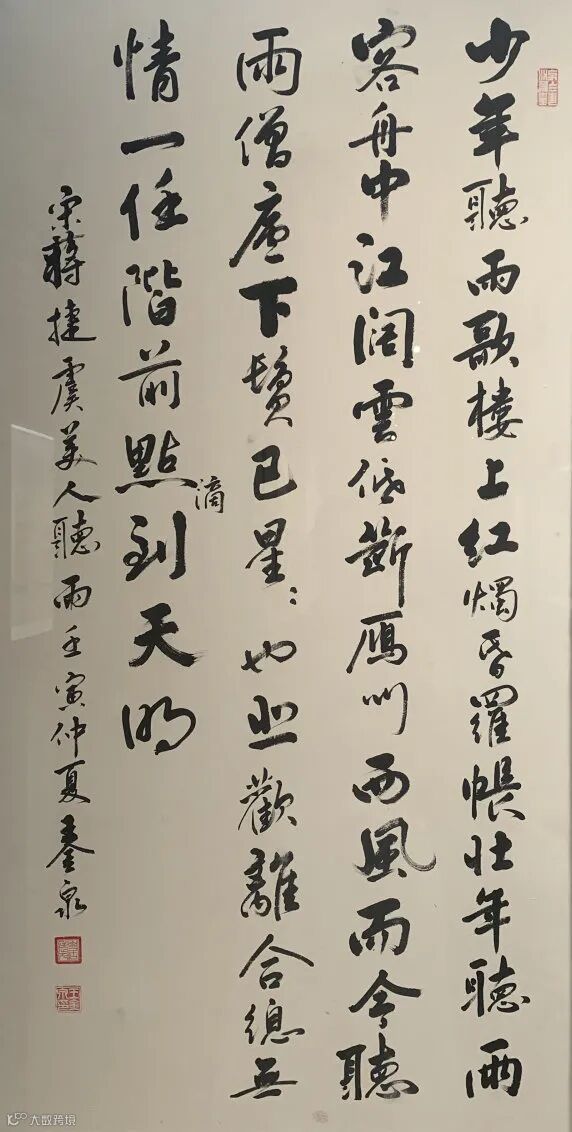 少年聽雨歌樓上紅燭昏羅帳壯年聽雨
客舟中江闊雲低斷鴈叫西風而今聽
雨僧廬下鬢已星〻也悲歡離合總無
情一任階前點滴到天明
宋蔣捷虞美人聽雨壬寅仲夏泉
大数跨境